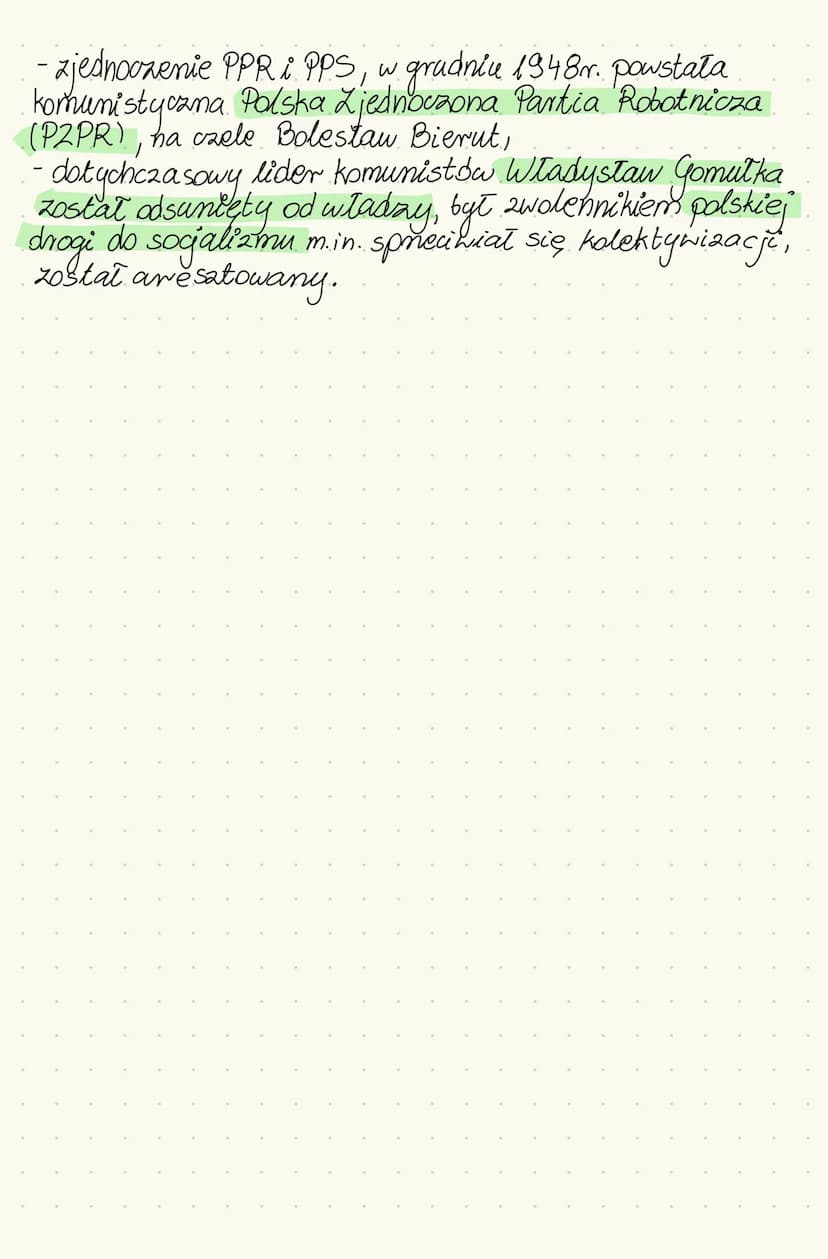 - zjednoczenie PPR i PPS, w grudniu 1948r. powstała
komunistyczna Polska Zjednoczona Partia Robotnicza
(PZPR), na czele Bolesław Bierut,
- dotychczasowy lider komunistów Władysław Gomułka
został odsunięty od władzy, był zwolennikiem polskiej
drogi do socjalizmu m.in. sprzeciwiał się kolektywizacji,
został aresztowany.